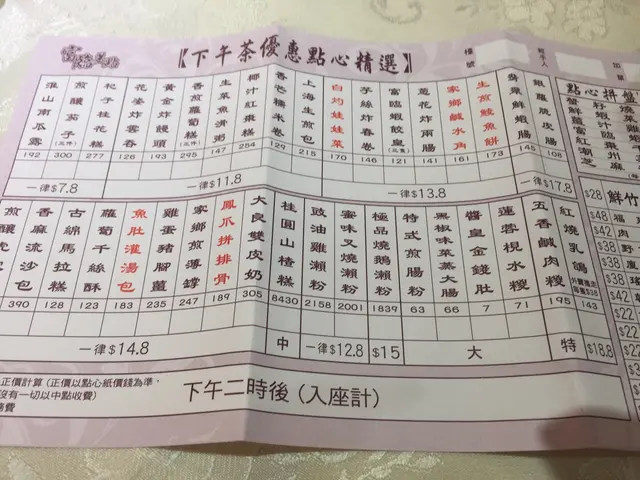 【下午茶優惠點心精選】
檯號
經手人
點心拼盤
淮山南瓜露
煎釀茄子(三件)
杞子桂花糕
花姿炸雲吞
黃金炸饅頭
香煎蘿蔔糕(三件)
生菜魚滑粥
椰汁紅棗糕
香芒糯米卷
上海生煎包
白灼娃娃菜
芋絲炸春卷
富臨蝦餃皇
蔥花炸兩腸
家鄉鹹水角
生煎鯪魚餅
鮮蝦腸
192 300 277 126 193 295 147 254 129 215 170 146 121 141 161 173 145 108
一律$7.8 一律$11.8 一律$13.8 一律$17.8
香麻流沙包
古綿馬拉糕
蘿蔔千絲酥
魚肚灌湯包
雞蛋豬腳薑
家鄉煎薄罉
鳳爪拼排骨
大良雙皮奶
桂圓山楂糕
豉油雞瀨粉
蜜味叉燒瀨粉
極品燒鵝瀨粉
特式煎腸粉
黑椒味菜蒸大腸
醬皇金錢肚
蓮蓉梘水糭
五香鹹肉糭
紅燒乳鴿
390 128 123 183 235 247 189 305 8430 2158 2001 1839 63 66 7 71 195 143
一律$14.8 中 一律$12.8 $15 大 特 $18.8
$28 鮮竹
$48
$42
$38
正價計算(正價以點心紙價錢為準，
沒有一切以中點收費)
下午二時後(入座計)